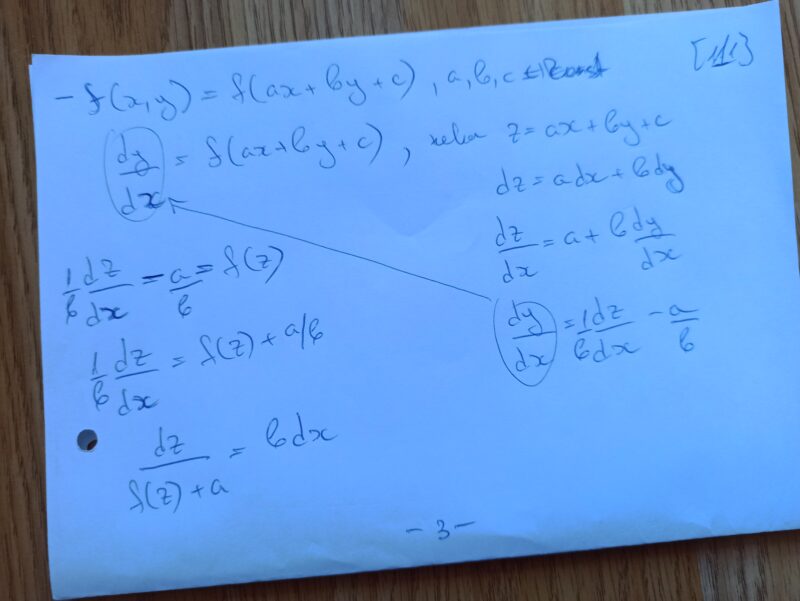 [11]
- f(x,y) = f(ax + by + c), a, b, c
dy/dx = f(ax + by + c), neka z = ax + by + c
dz = adx + bdy
dz/dx = a + b dy/dx
dy/dx = 1/b dz/dx - a/b
1/b dz/dx - a/b = f(z)
1/b dz/dx = f(z) + a/b
dz/(f(z) + a) = bdx
- 3 -